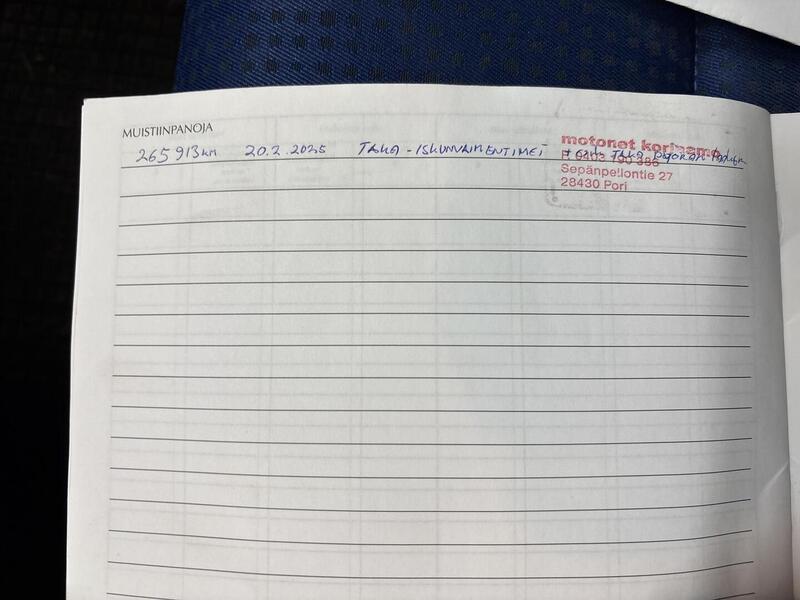 MUISTIINPANOJA
265 913 km 20.2.2025 TAKA-ISKUNVAIMENTIMET + TAKA
motonet korjaamo
P. 0403 190 386
Sepänpellontie 27
28430 Pori